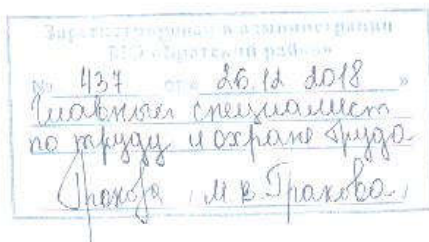 Зарегистрирован в администрации
МО «Братский район»
№ 437 от « 26.12 2018 »
Главный специалист
по труду и охране труда
Гракова / М.В. Гракова /